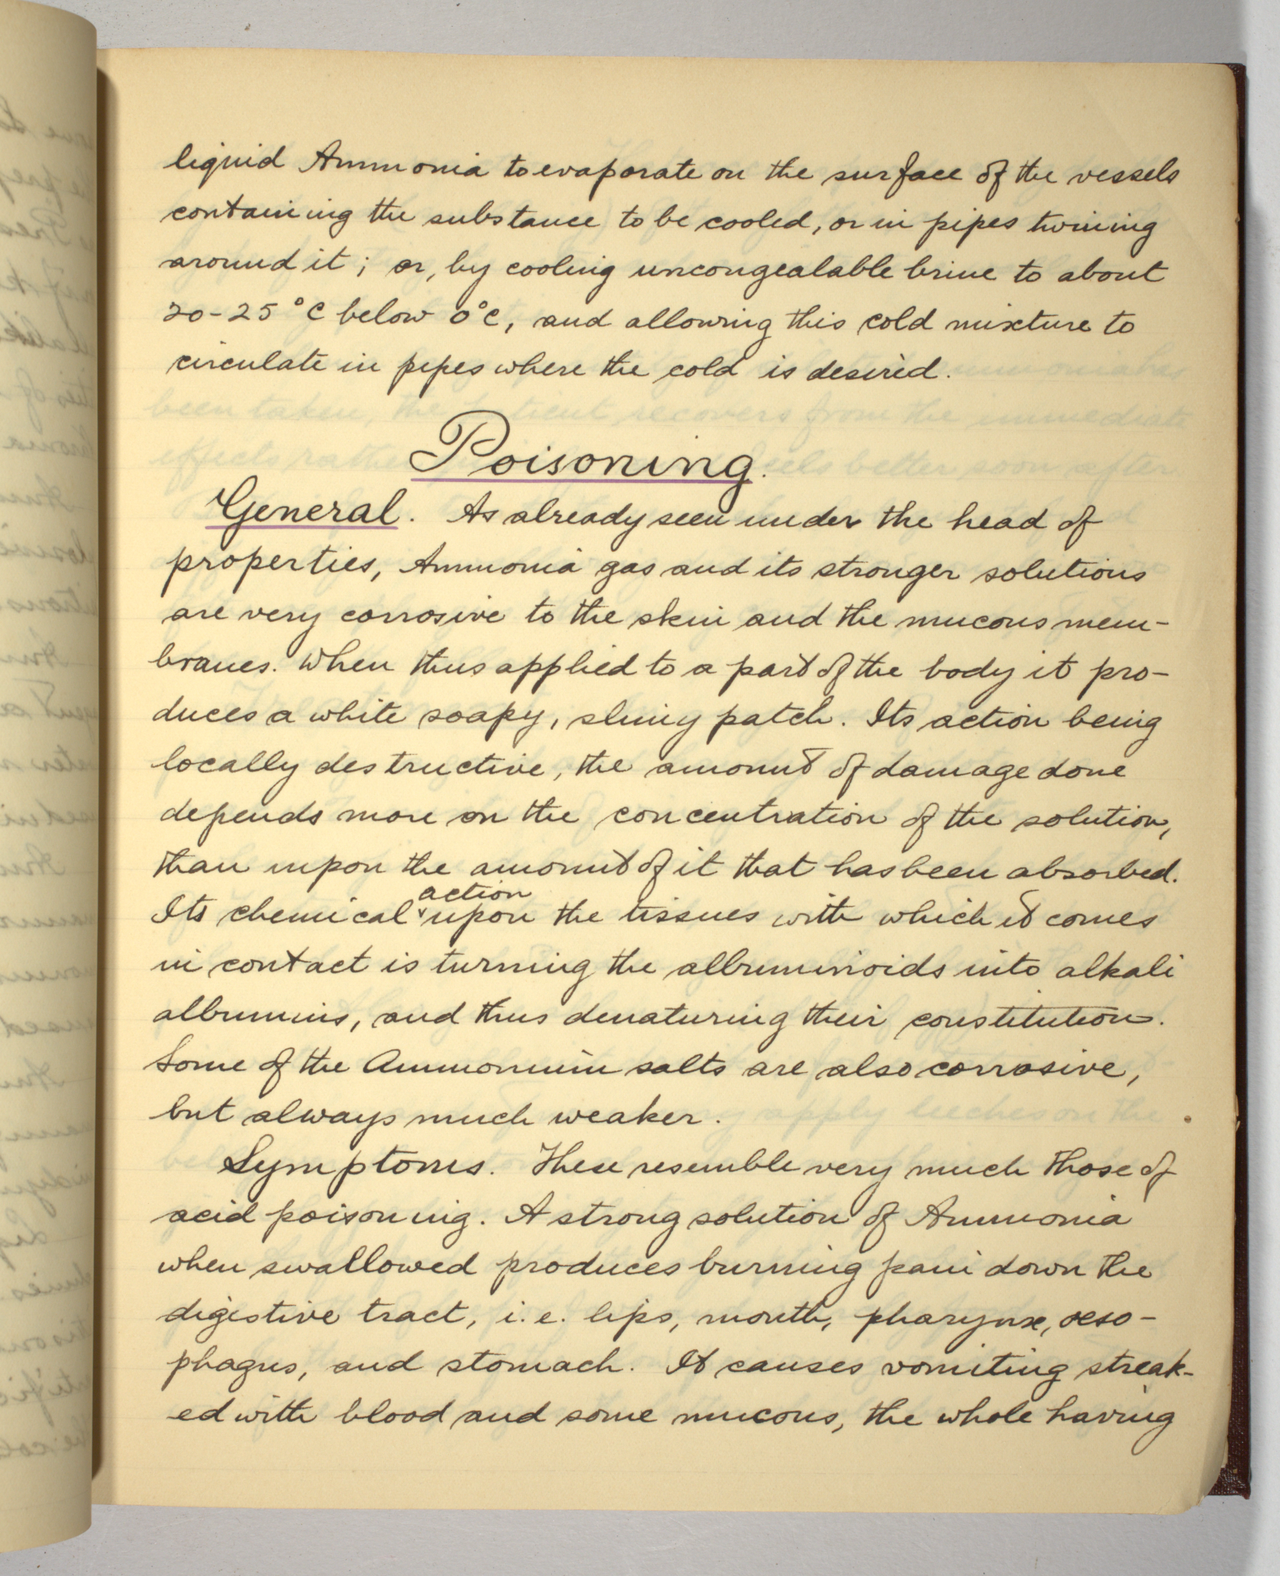 liquid Ammonia to evaporate on the surface of the vessels
containing the substance to be cooled, or in pipes twining
around it; or, by cooling uncongealable brine to about
20-25°C below 0°C, and allowing this cold mixture to
circulate in pipes where the cold is desired.
Poisoning.
General. As already seen under the head of
properties, Ammonia gas and its stronger solutions
are very corrosive to the skin and the mucous mem-
branes. When thus applied to a part of the body it pro-
duces a white soapy, slimy patch. Its action being
locally destructive, the amount of damage done
depends more on the concentration of the solution,
than upon the amount of it that has been absorbed.
Its chemical action upon the tissues with which it comes
in contact is turning the albuminoids into alkali
albumins, and thus denaturing their constitution.
Some of the Ammonium salts are also corrosive,
but always much weaker.
Symptoms. These resemble very much those of
acid poisoning. A strong solution of Ammonia
when swallowed produces burning pain down the
digestive tract, i.e. lips, mouth, pharynx, oeso-
phagus, and stomach. It causes vomiting streak-
ed with blood and some mucous, the whole having